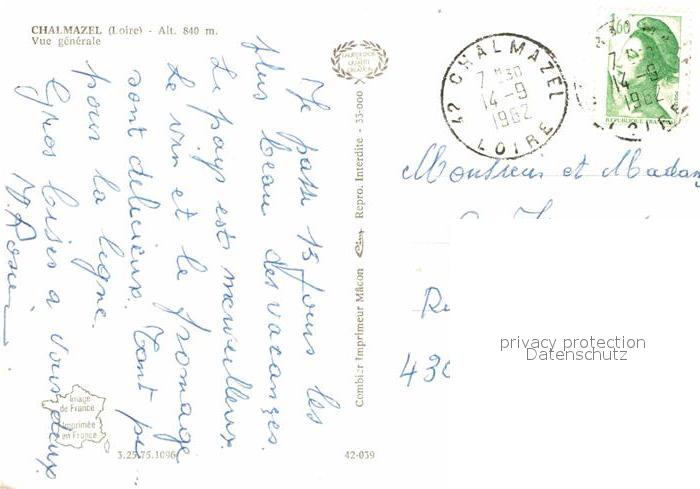 CHALMAZEL (Loire) - Alt. 840 m.
Vue générale
Je passe 15 jours les
plus beau des vacances.
Le pays est merveilleux.
Le vin et le fromage
sont delicieux. Tant pi
pour la ligne.
Gros bises a vous deux
M. Rosier
Image
de France
Imprimée
en France
3.25.75.1096
42-039
Combier Imprimeur Mâcon
Repro. Interdite - 35-000
42 CHALMAZEL
7 H30
14-9
1982
LOIRE
1,60
REPUBLIQUE FRA
7
14-9
1982
LOIRE
Monsieur et Madam
Re
430
privacy protection
Datenschutz